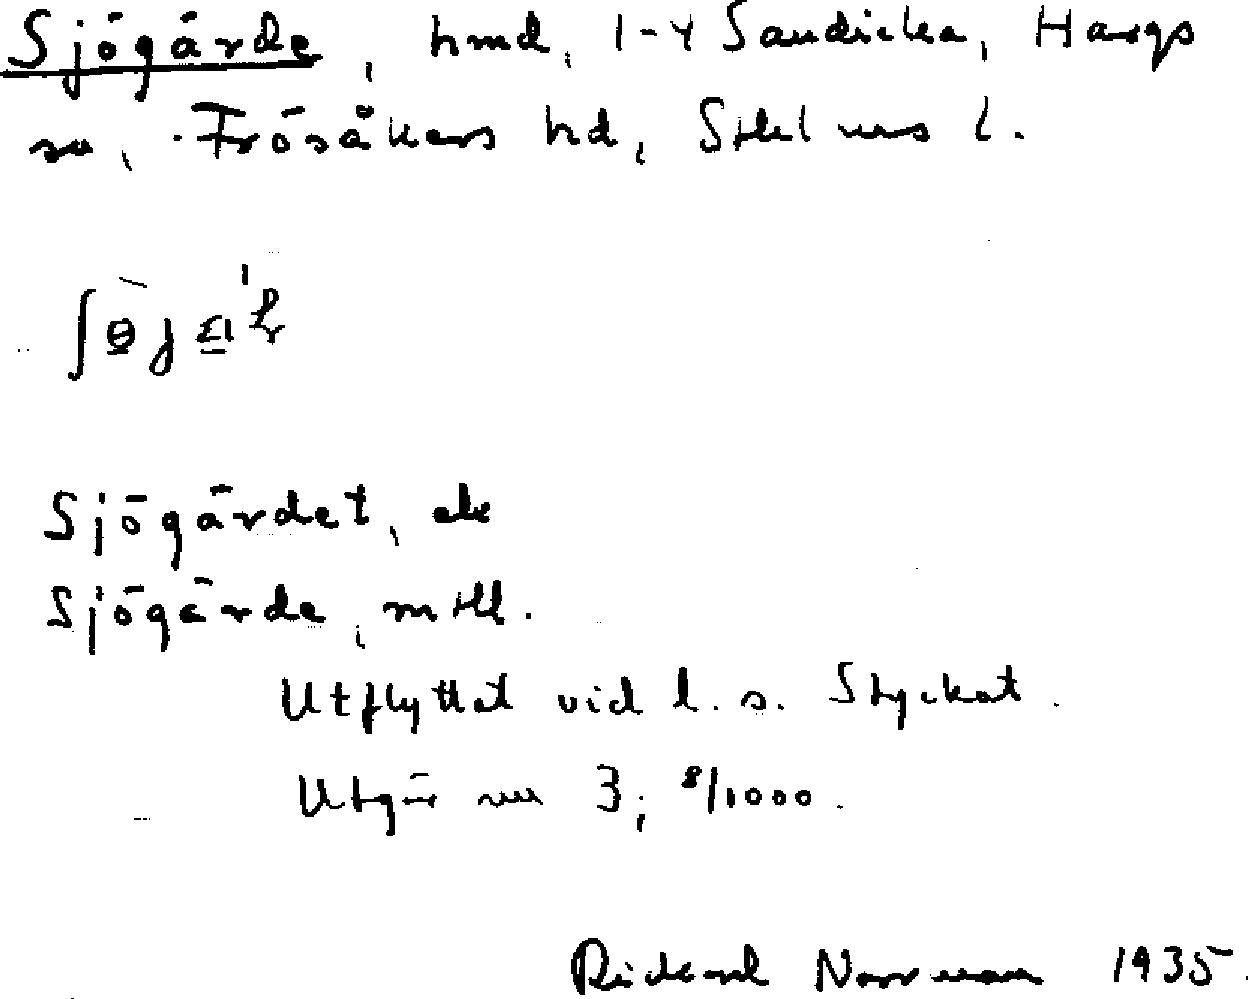 Sjögärde, hmd, 1-4 Sandicka, Hargs
sn, Frösåkers hd, Sthlms l.
Sjögärdet, ek
Sjögärde, mtll.
Utflyttat vid l. s. Styckat.
Utgör nu 3; 8/1000.
Rickard Norrman 1935.